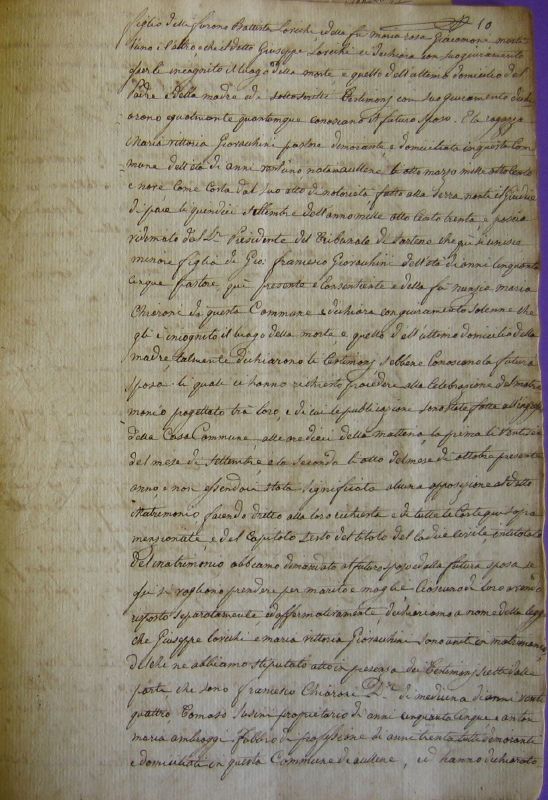 10
figlio delli furono Battista Lorichi e della fu Maria rosa Giacomone morti
l'uno e l'altro che il detto Giuseppe Lorichi ci dichiara con suo giuramento
esserli incognito il luogo della morte e quello dell'ultimo domicilio del
Padre e della madre ed i sottoscritti Testimonj con suo giuramento dichi
arono egualmente quantunque conoscano il futuro sposo. E la ragazza
Maria Vittoria Giovachini pastora dimorante e domiciliata in questa Com
muna dell'età di anni vent'uno nata in aullene li otto marzo mille otto cento
e nove come costa dal suo atto di notorietà fatto alla Serra nanti il Giudice
di pace li quindici settembre dell'anno mille otto cento trenta e poscia
vidimato dal Sr. Presidente del Tribunale di Sartene che qui si unisce
minore figlia di Gio. Francesco Giovachini dell'età di anni cinquanta
cinque pastore, qui presente e consentiente e della fu nunzia maria
Chiaroni di questa Commune e dichiara con giuramento solenne che
gli è incognito il luogo della morte e quello dell'ultimo domicilio della
madre, talmente dichiarono li Testimonj sebbene conoscano la futura
sposa: li quali ci hanno richiesto procedere alla Celebrazione del matri
monio progettato trà loro, e di cui le publicazione sono state fatte all'ingresso
della Casa Commune alle undici della mattina, la prima li
del mese di settembre e la seconda li otto del mese di ottobre presente
anno, e non essendoci stata significata alcuna opposizione al detto
Matrimonio facendo dritto alla loro richiesta e di tutte le carte qui sopra
mensionate e del Capitolo sesto del titolo del Codice Civile intitolato
Del matrimonio abbiamo dimandato al futuro sposo e alla futura sposa se
si vogliono prendere per marito e moglie ciascuno di loro avendo
risposto separatamente ed affermativamente dichiariamo a nome della legge
che Giuseppe Lorichi e maria vittoria Giovachini sono uniti in matrimonio
del che ne abbiamo stipulato atto in presenza dei Testimonj scelti dalle
parti che sono francesco Chiaroni Dr. di medicina di anni venti
quattro Tomaso Susini proprietario di anni cinquanta cinque e anton
maria ambroggi Fabbro di professione di anni trenta tutti dimoranti
e domiciliati in questa Commune di aullene, ed hanno dichiarato